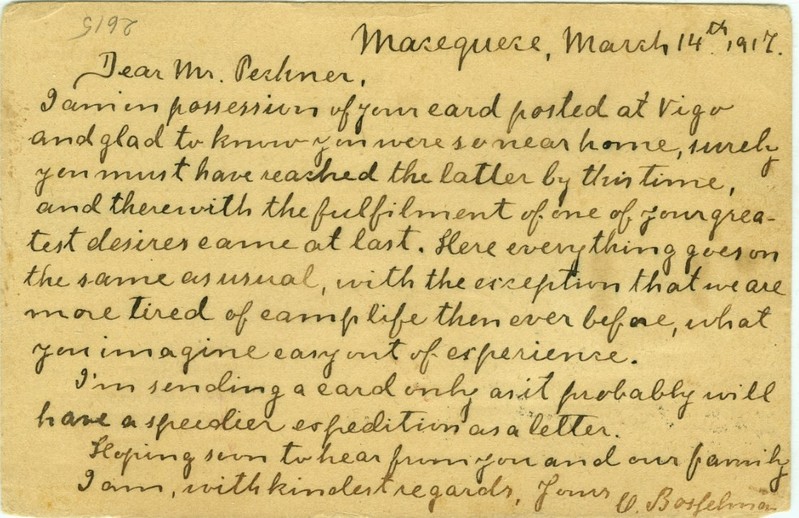 2615
Macequece, March 14th 1917.
Dear Mr. Peshner,
I am in possession of your card posted at Vigo
and glad to know you were so near home, surely
you must have reached the latter by this time,
and therewith the fulfilment of one of your grea-
test desires came at last. Here everything goes on
the same as usual, with the exception that we are
more tired of camp life then ever before, what
you imagine easy out of experience.
I'm sending a card only as it probably will
have a speedier expedition as a letter.
Hoping soon to hear from you and our family
I am, with kindest regards, Yours